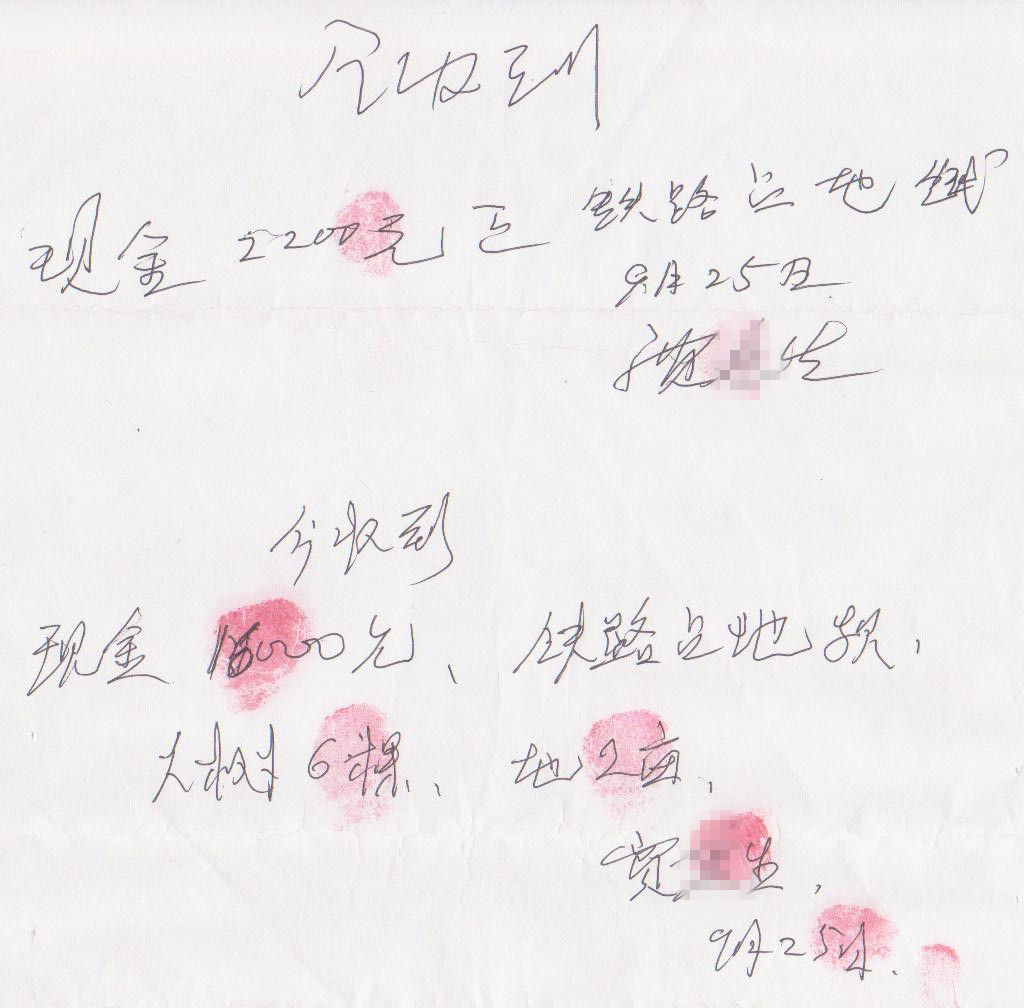 今收到
现金2200元正 铁路占地钱
9月25日
生
今收到
现金18000元、铁路占地款,
大树6棵、地2亩,
生,
9月25日.